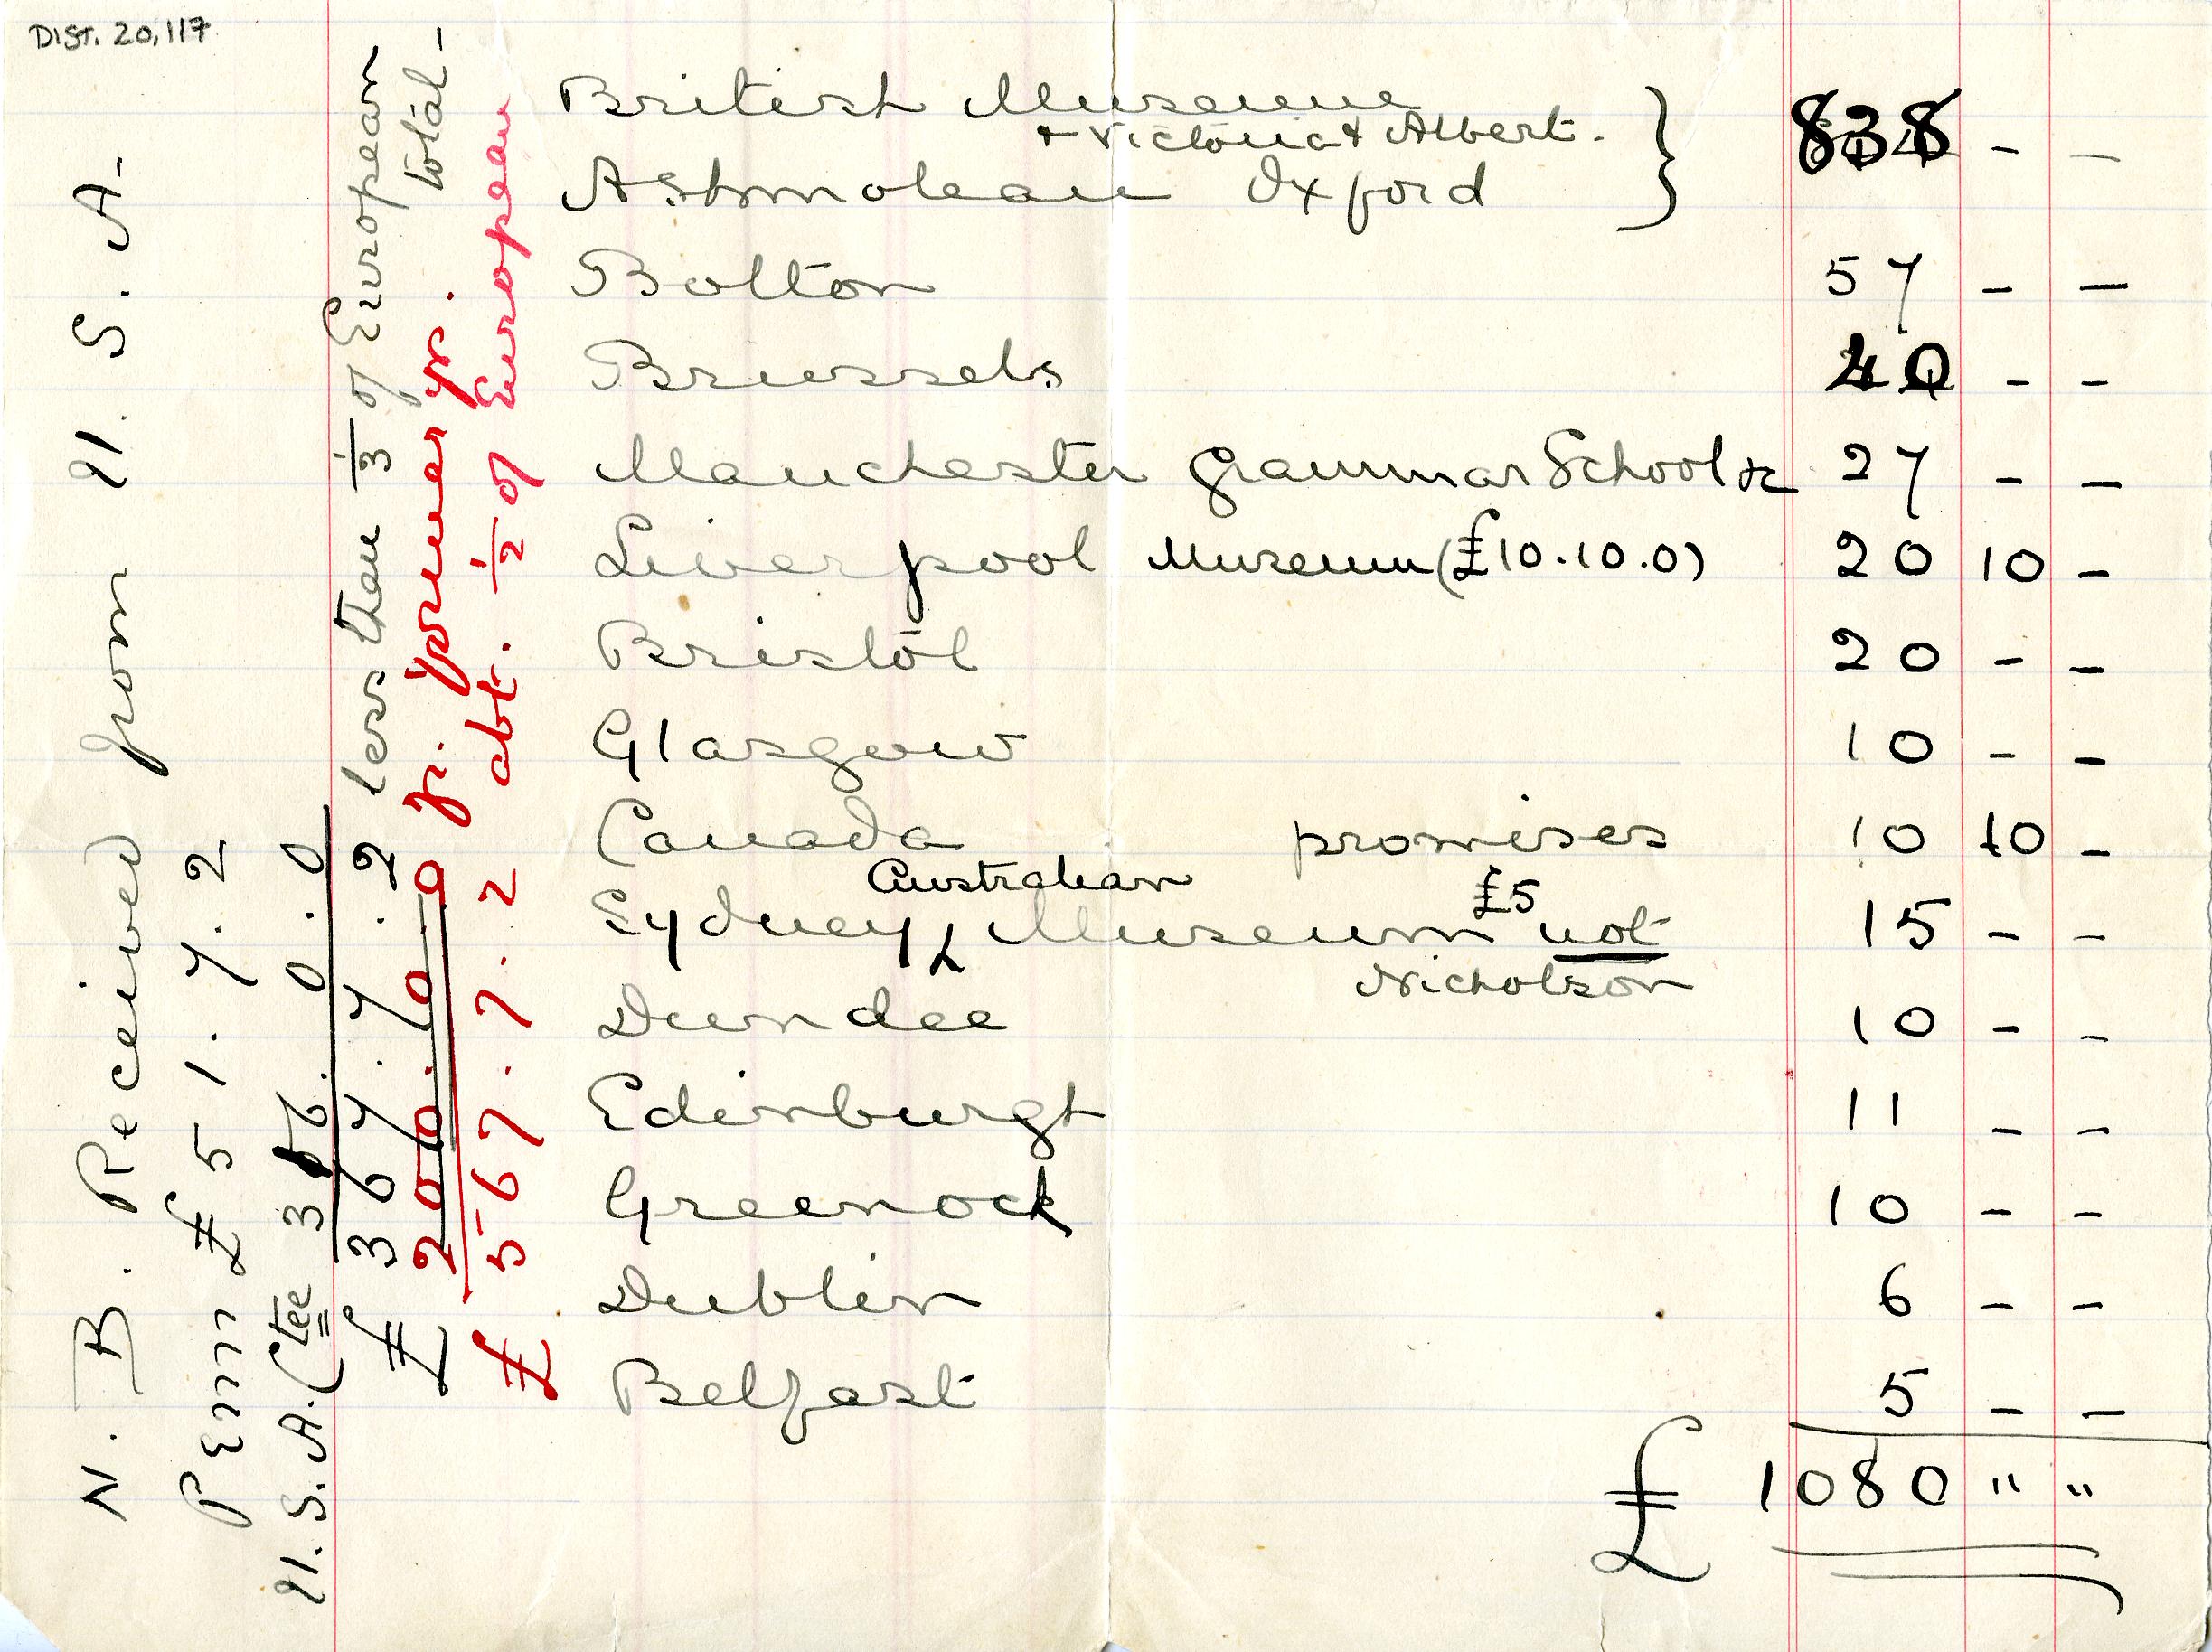 DIST. 20,117
British Museum
+ Victoria & Albert. } 838 - -
Ashmolean Oxford
Bolton 57 - -
Brussels 40 - -
Manchester Grammar School &c 27 - -
Liverpool Museum (£10.10.0) 20 10 -
Bristol 20 - -
Glasgow 10 - -
Canada promises 10 10 -
Australian £5
Sydney Museum not 15 - -
Nicholson
Dundee 10 - -
Edinburgh 11 - -
Greenock 10 - -
Dublin 6 - -
Belfast 5 - -
£ 1080 " "
N. B. Received from U. S. A-
Penn £ 51.7.2
U. S. A. Ctee 316. 0. 0
£ 367. 7. 2 less than 1/3 of European
total-
200. 0. 0 fr. former yr.
£ 567. 7. 2 abt. 1/2 of European